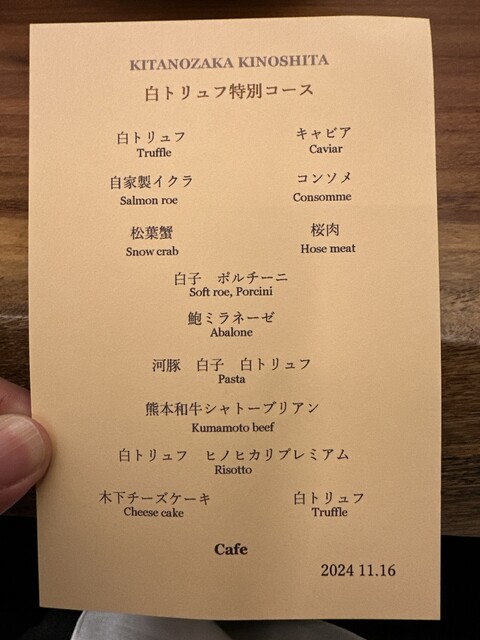 KITANOZAKA KINOSHITA
白トリュフ特別コース
白トリュフ キャビア
Truffle Caviar
自家製イクラ コンソメ
Salmon roe Consomme
松葉蟹 桜肉
Snow crab Hose meat
白子 ポルチーニ
Soft roe, Porcini
鮑ミラネーゼ
Abalone
河豚 白子 白トリュフ
Pasta
熊本和牛シャトーブリアン
Kumamoto beef
白トリュフ ヒノヒカリプレミアム
Risotto
木下チーズケーキ 白トリュフ
Cheese cake Truffle
Cafe
2024 11.16